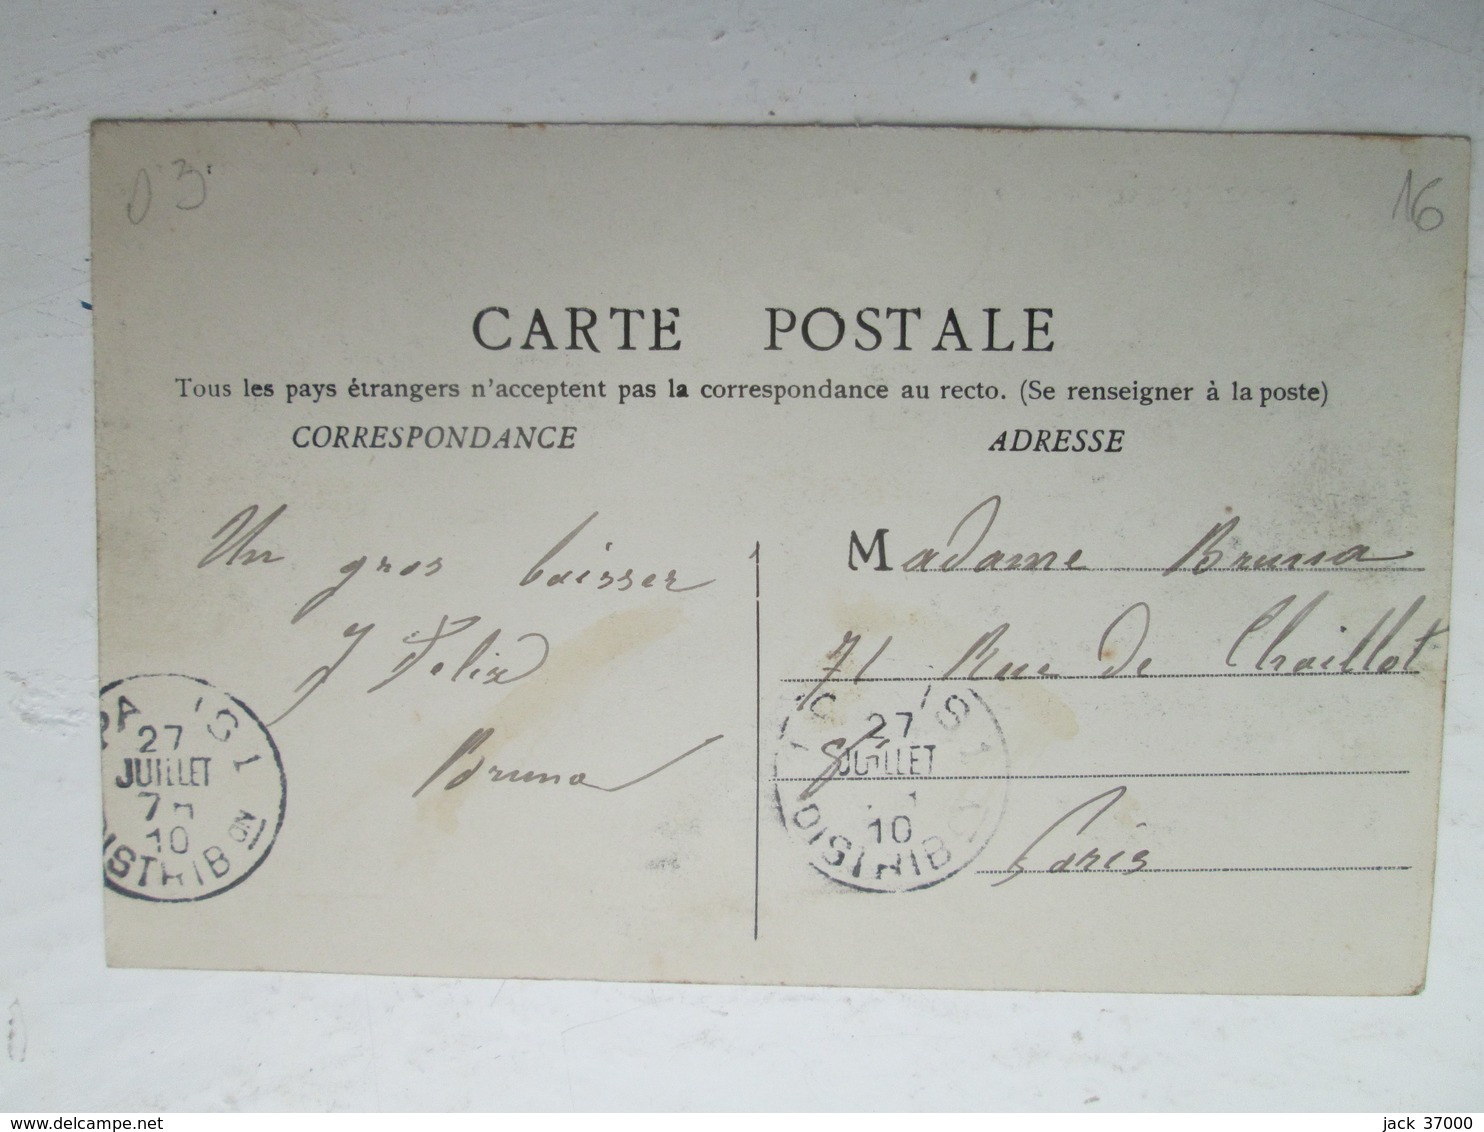 03
16
CARTE POSTALE
Tous les pays étrangers n'acceptent pas la correspondance au recto. (Se renseigner à la poste)
CORRESPONDANCE
ADRESSE
Un gros baisser
J Felix
Bruna
Madame Bruna
71 Rue de Chaillot
Paris
27
JUILLET
7
10
DISTRIBON
27
JUILLET
10
DISTRIB
delcampe.net
jack 37000